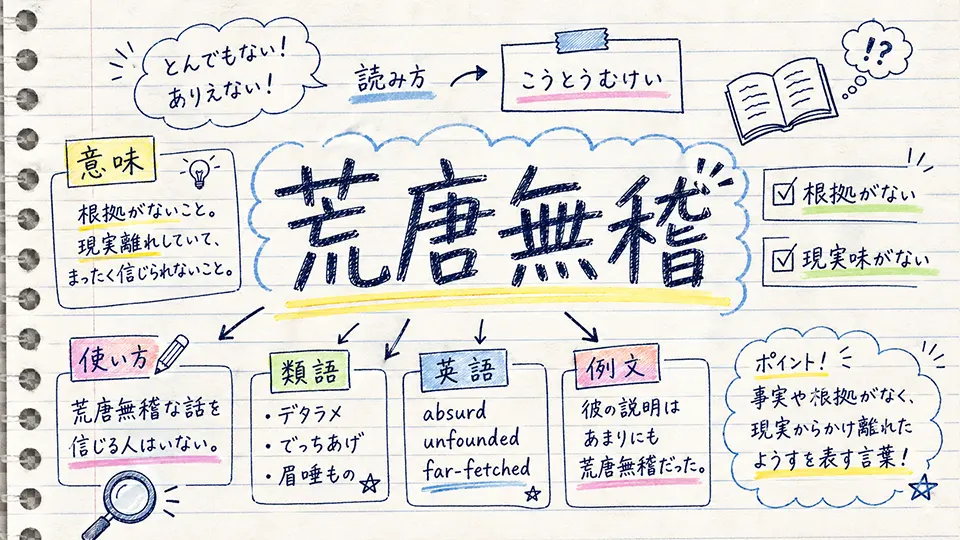 とんでもない!
ありえない!
読み方
こうとうむけい
!?
意味
根拠がないこと。
現実離れしていて、
まったく信じられないこと。
荒唐無稽
根拠がない
現実味がない
使い方
荒唐無稽な話を
信じる人はいない。
類語
・デタラメ
・でっちあげ
・眉唾もの
英語
absurd
unfounded
far-fetched
例文
彼の説明は
あまりにも
荒唐無稽だった。
ポイント!
事実や根拠がなく、
現実からかけ離れた
ようすを表す言葉!